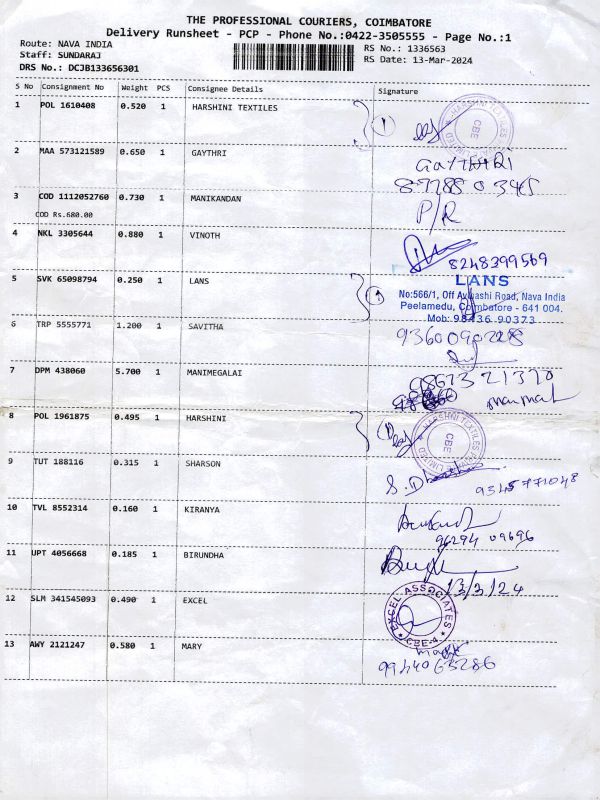 THE PROFESSIONAL COURIERS, COIMBATORE
Delivery Runsheet - PCP - Phone No.:0422-3505555 - Page No.:1
Route: NAVA INDIA
RS No.: 1336563
Staff: SUNDARAJ
RS Date: 13-Mar-2024
DRS No.: DCJB133656301
S No Consignment No Weight PCS Consignee Details Signature
1 POL 1610408 0.520 1 HARSHINI TEXTILES
CBE
2 MAA 573121589 0.650 1 GAYTHRI GAYTHRI
3 COD 1112052760 0.730 1 MANIKANDAN P/R
COD Rs.680.00
4 NKL 3305644 0.880 1 VINOTH
8248399569
5 SVK 65098794 0.250 1 LANS LANS
No:566/1, Off Avinashi Road, Nava India
Peelamedu, Coimbatore - 641 004.
Mob: 98436 90373
6 TRP 5555771 1.200 1 SAVITHA
7 DPM 438060 5.700 1 MANIMEGALAI
8 POL 1961875 0.495 1 HARSHINI
CBE
9 TUT 188116 0.315 1 SHARSON
9345771048
10 TVL 8552314 0.160 1 KIRANYA
96294 09696
11 UPT 4056668 0.185 1 BIRUNDHA
13/3/24
12 SLM 341545093 0.490 1 EXCEL EXCEL ASSOCIATES
CBE-4
13 AWY 2121247 0.580 1 MARY
9944063286